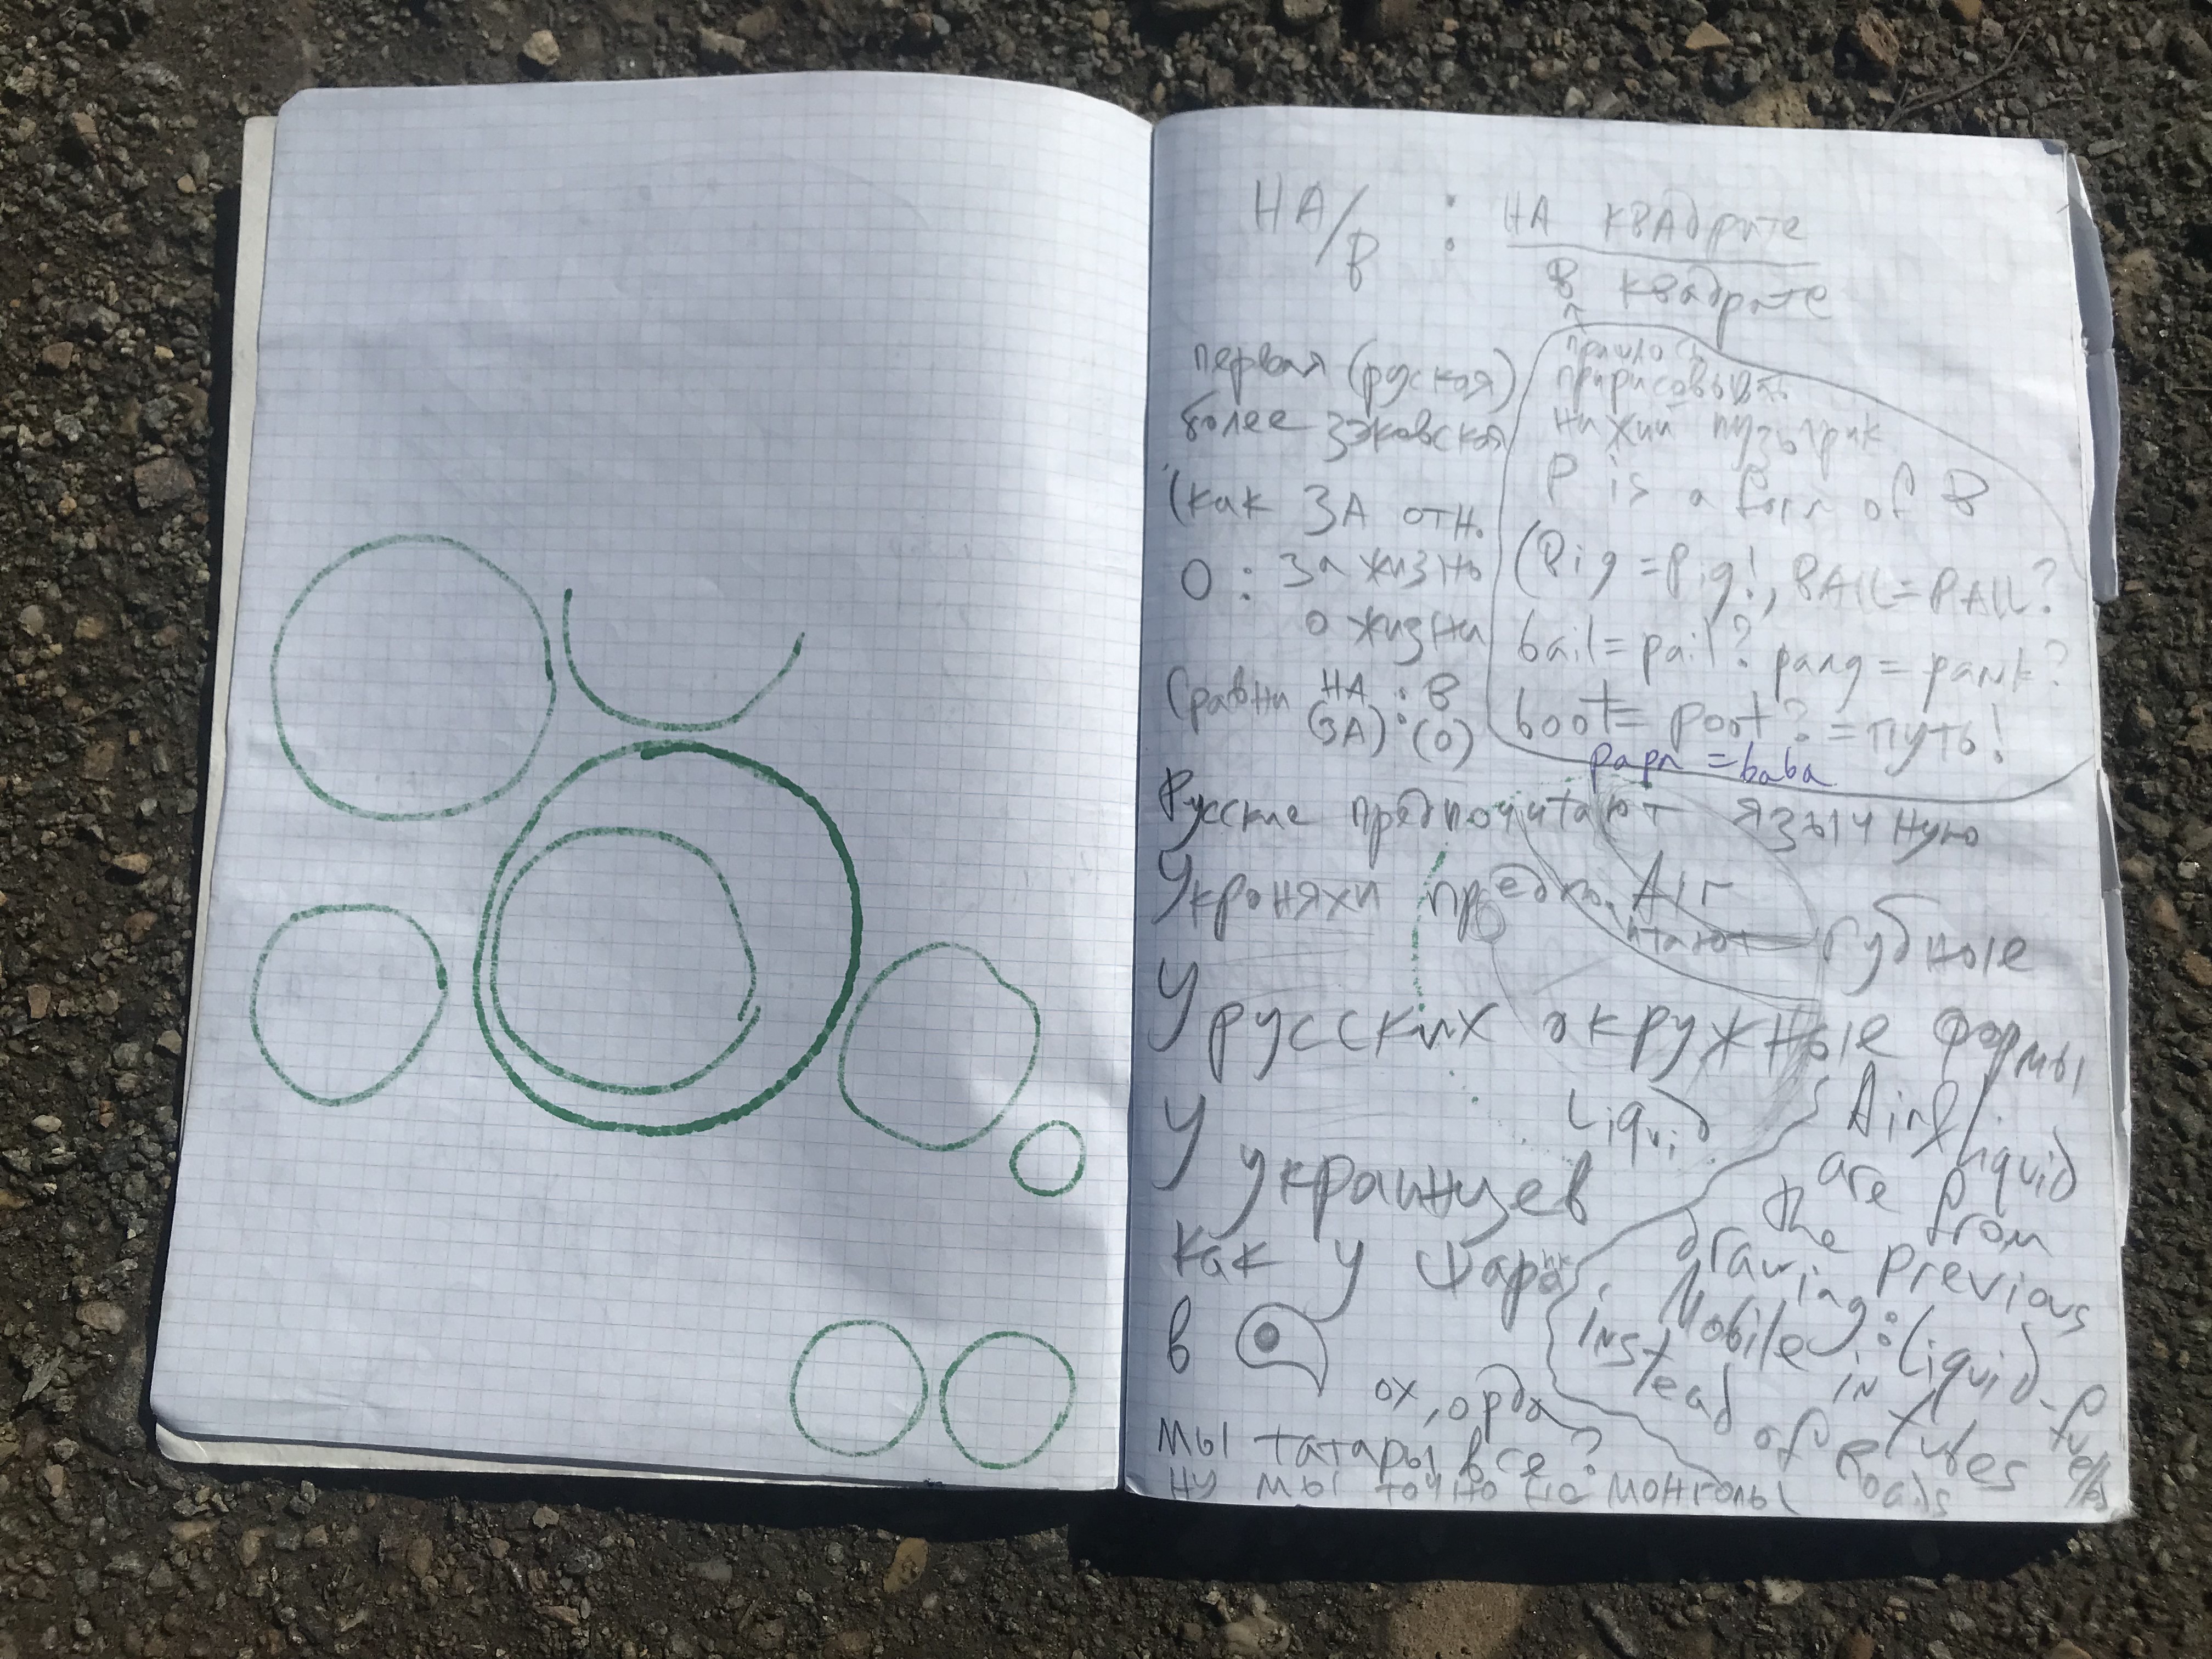 НА/В : НА квадрате
В квадрате
первая (руская)
более зэковской
(как ЗА отн.
О : за жизнь
о жизни
Сравни НА : В
(ЗА) : (О)
↑
пришлось
пририсовывать
нижний пузырик
P is a form of B
(Big = Pig!, BALL = PALL?
bail = pail? pang = pank?
boot = poot? = путь!
papa = baba
Русские предпочитают язычную
Укроняхи предпо. Air
читают губные
У русских окружные формы
Liquid
У украинцев
как у шара
в
ох, орда
мы татары все?
ну мы точно не монголы
Air & Liquid
are from
the previous
drawing: Liquid-fuel
Mobile in
instead of Roads